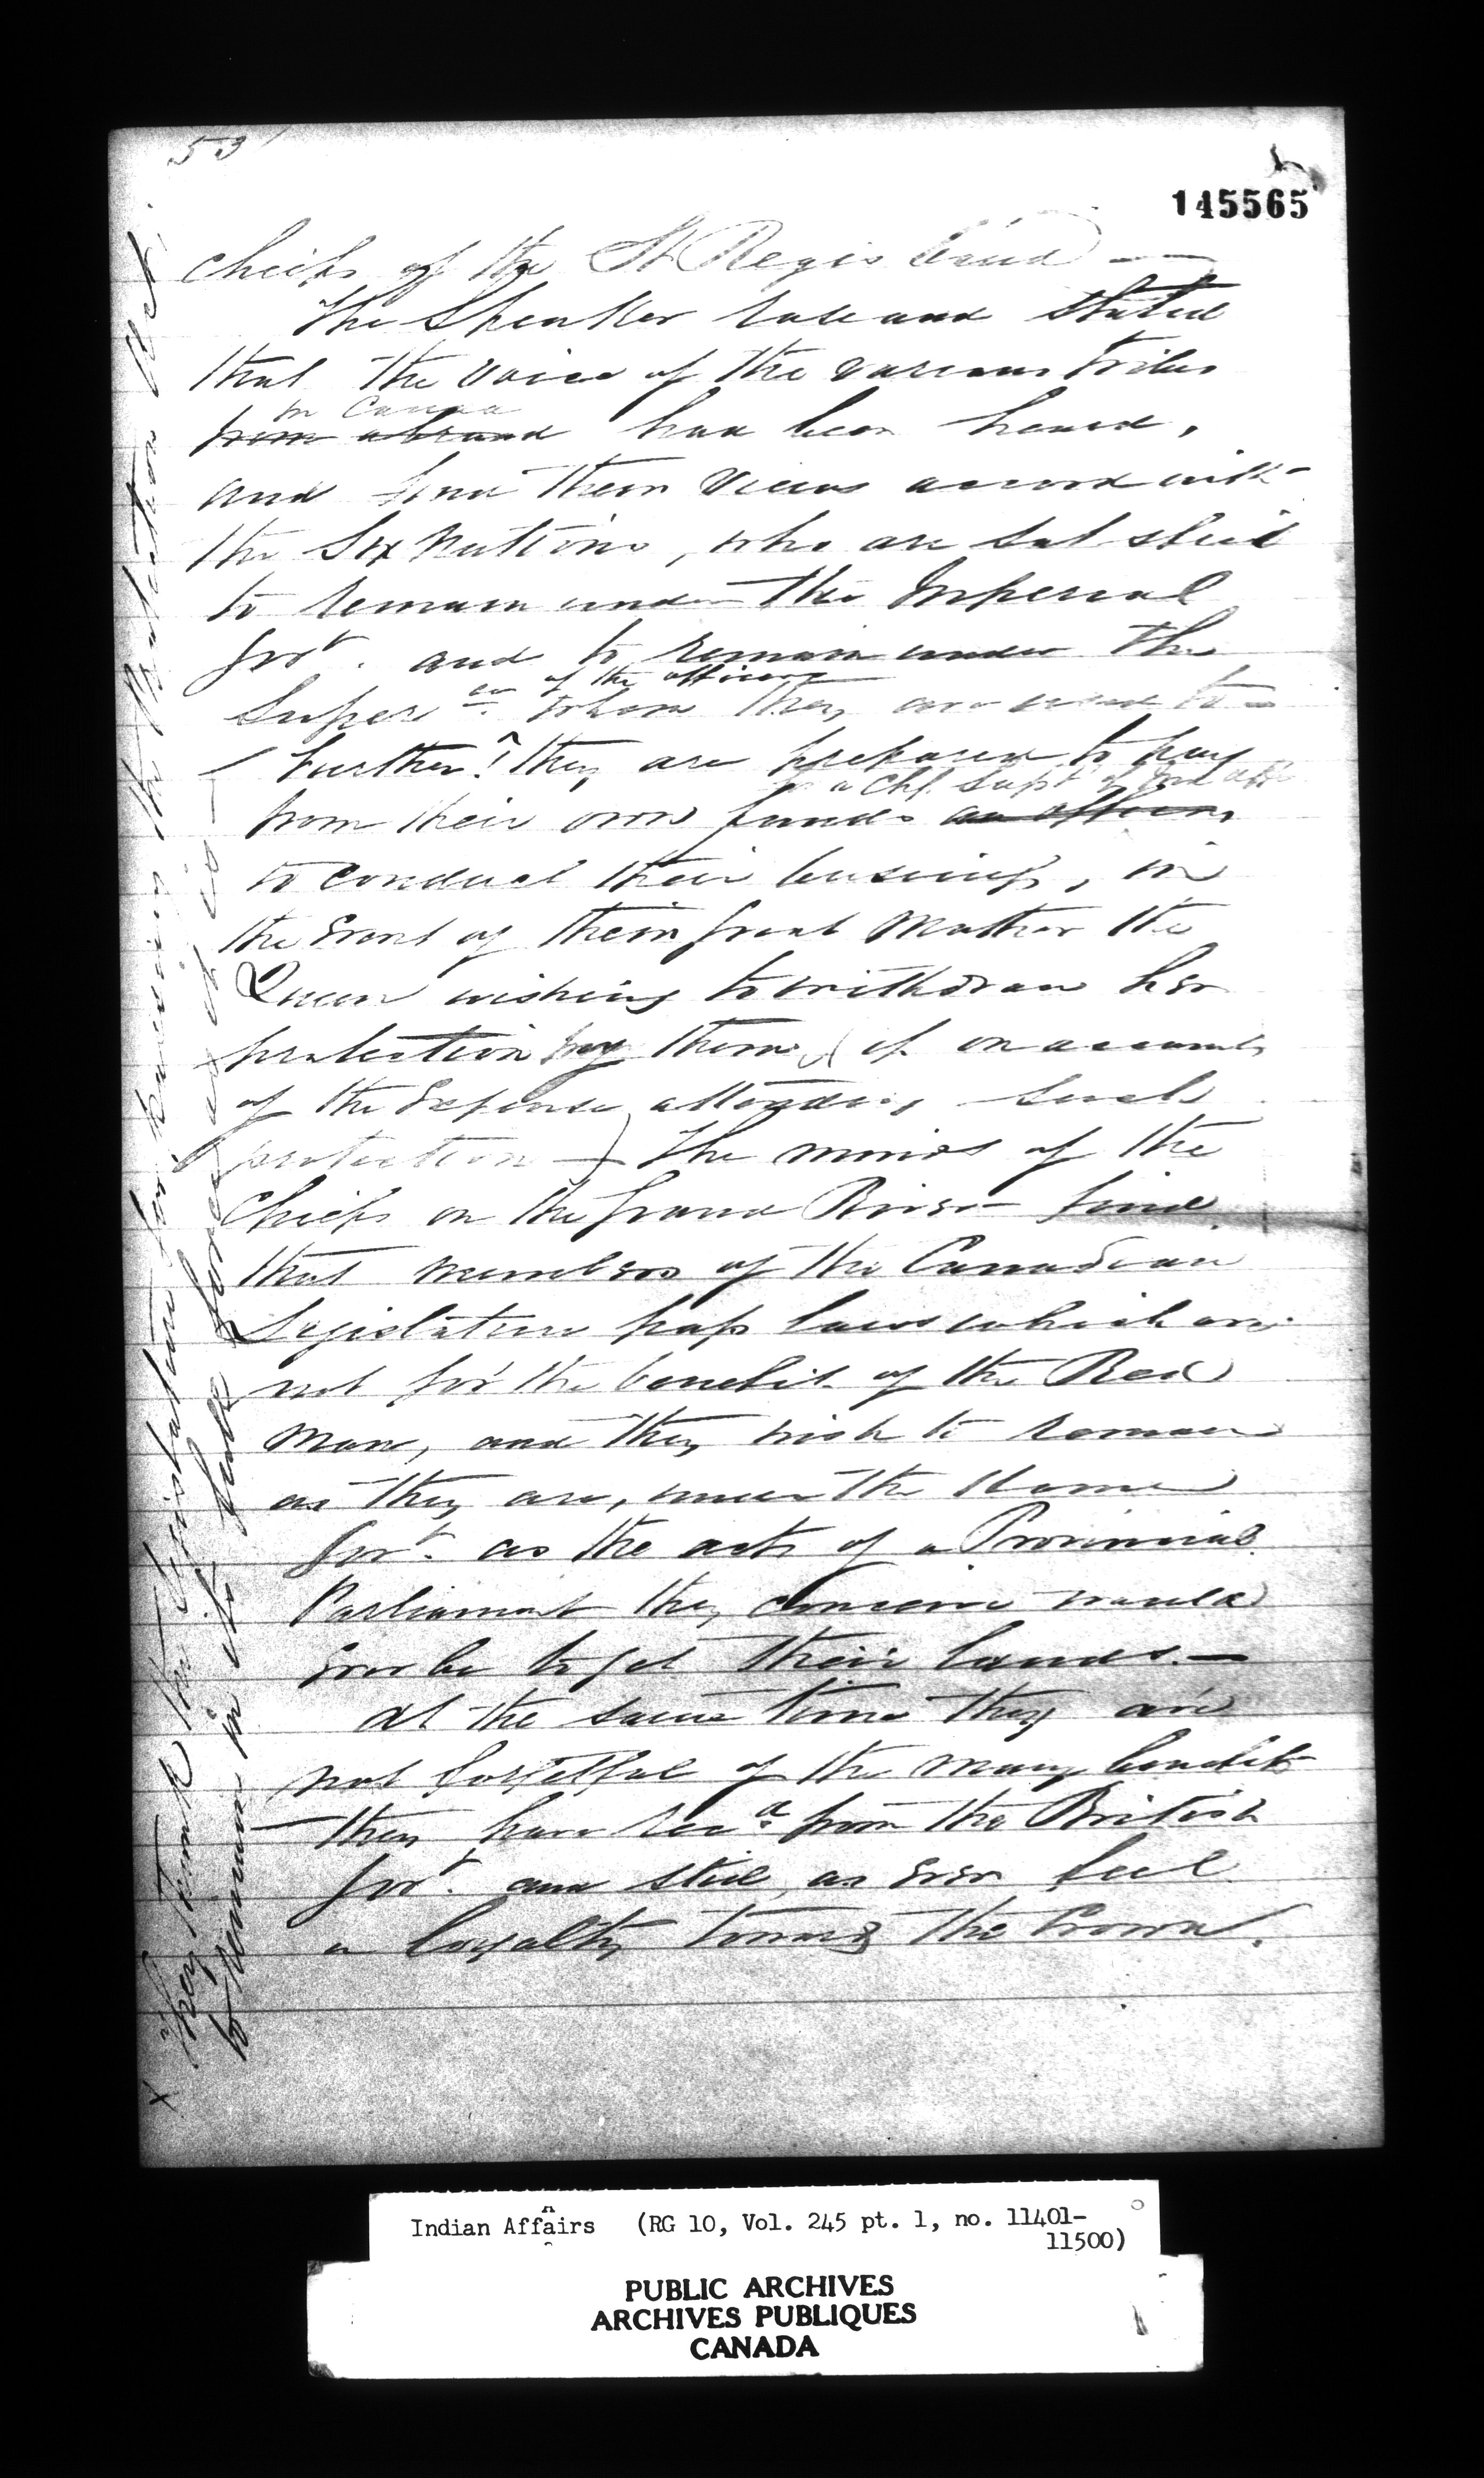 53
145565
chiefs of the St Regis Band —
The Speaker rose and stated
that the voice of the various tribes
in Canada
from abroad had been heard,
and find their views accord with
the Six Nations, who are satisfied
to remain under the Imperial
Govt. and to remain under the
of the officers
Super.ce whom they are used to —
Further! they are prepared to pay
for a Chf. Supt of Ind affs
from their own funds an officer
to conduct their business, in
the event of their great Mother the
Queen wishing to withdraw her
protection from them, (if on account
of the expense attending such
protection —) The minds of the
Chiefs on the Grand River find
that members of the Canadian
Legislature pass laws which are
not for the benefit of the Red
man, and they wish to remain
as they are, under the Home
Govt. as the acts of a Provincial
Parliament they conceive would
ever be to get their lands. —
at the same time they are
not forgetful of the many benefits
they have recd. from the British
Govt. and still, as ever feel
a loyalty towards the Crown.
x They thank the Legislature for passing the Protection Act,
to remain in its full force as it is —
Indian Affairs (RG 10, Vol. 245 pt. 1, no. 11401-
11500)
PUBLIC ARCHIVES
ARCHIVES PUBLIQUES
CANADA